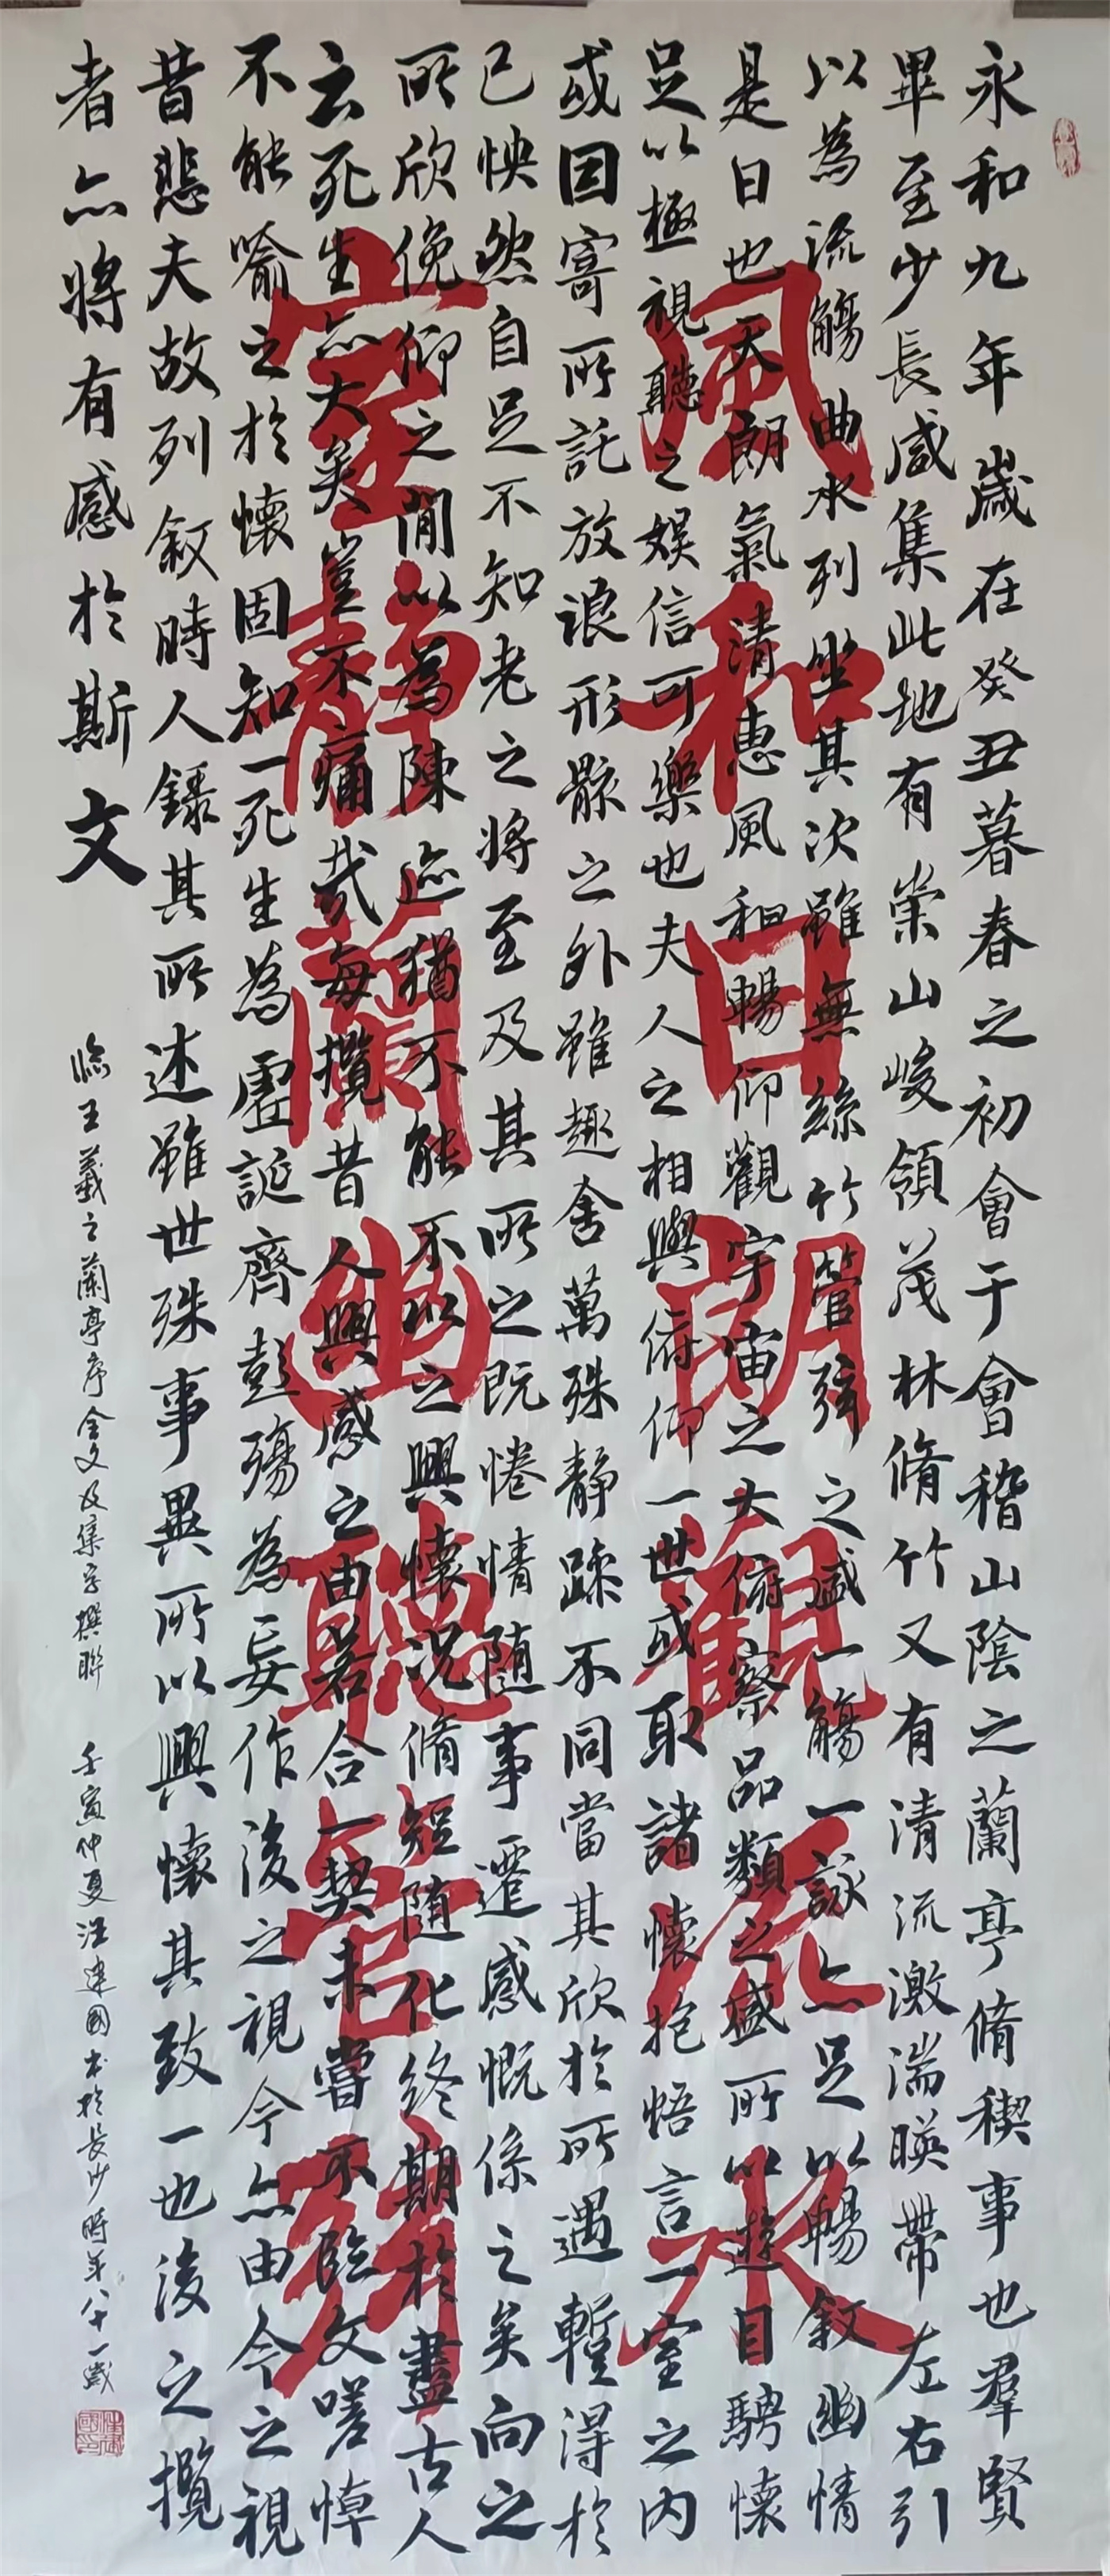 風和日朗觀水
室靜蘭幽聽
永和九年歲在癸丑暮春之初會于會稽山陰之蘭亭脩稧事也羣賢
畢至少長咸集此地有崇山峻領茂林脩竹又有清流激湍暎帶左右引
以為流觴曲水列坐其次雖無絲竹管弦之盛一觴一詠亦足以暢敘幽情
是日也天朗氣清惠風和暢仰觀宇宙之大俯察品類之盛所以遊目騁懷
足以極視聽之娛信可樂也夫人之相與俯仰一世或取諸懷抱悟言一室之內
或因寄所託放浪形骸之外雖趣舍萬殊静躁不同當其欣於所遇暫得於
己怏然自足不知老之將至及其所之既惓情隨事遷感慨係之矣向之
所欣俛仰之閒以為陳迹猶不能不以之興懷況脩短隨化終期於盡古人
云死生亦大矣豈不痛哉每攬昔人興感之由若合一契未嘗不臨文嗟悼
不能喻之於懷固知一死生為虛誕齊彭殤為妄作後之視今亦由今之視
昔悲夫故列敘時人錄其所述雖世殊事異所以興懷其致一也後之攬
者亦將有感於斯文
臨王羲之蘭亭序全文及集字撰聯 壬寅仲夏汪建國书於長沙時年八十一歲